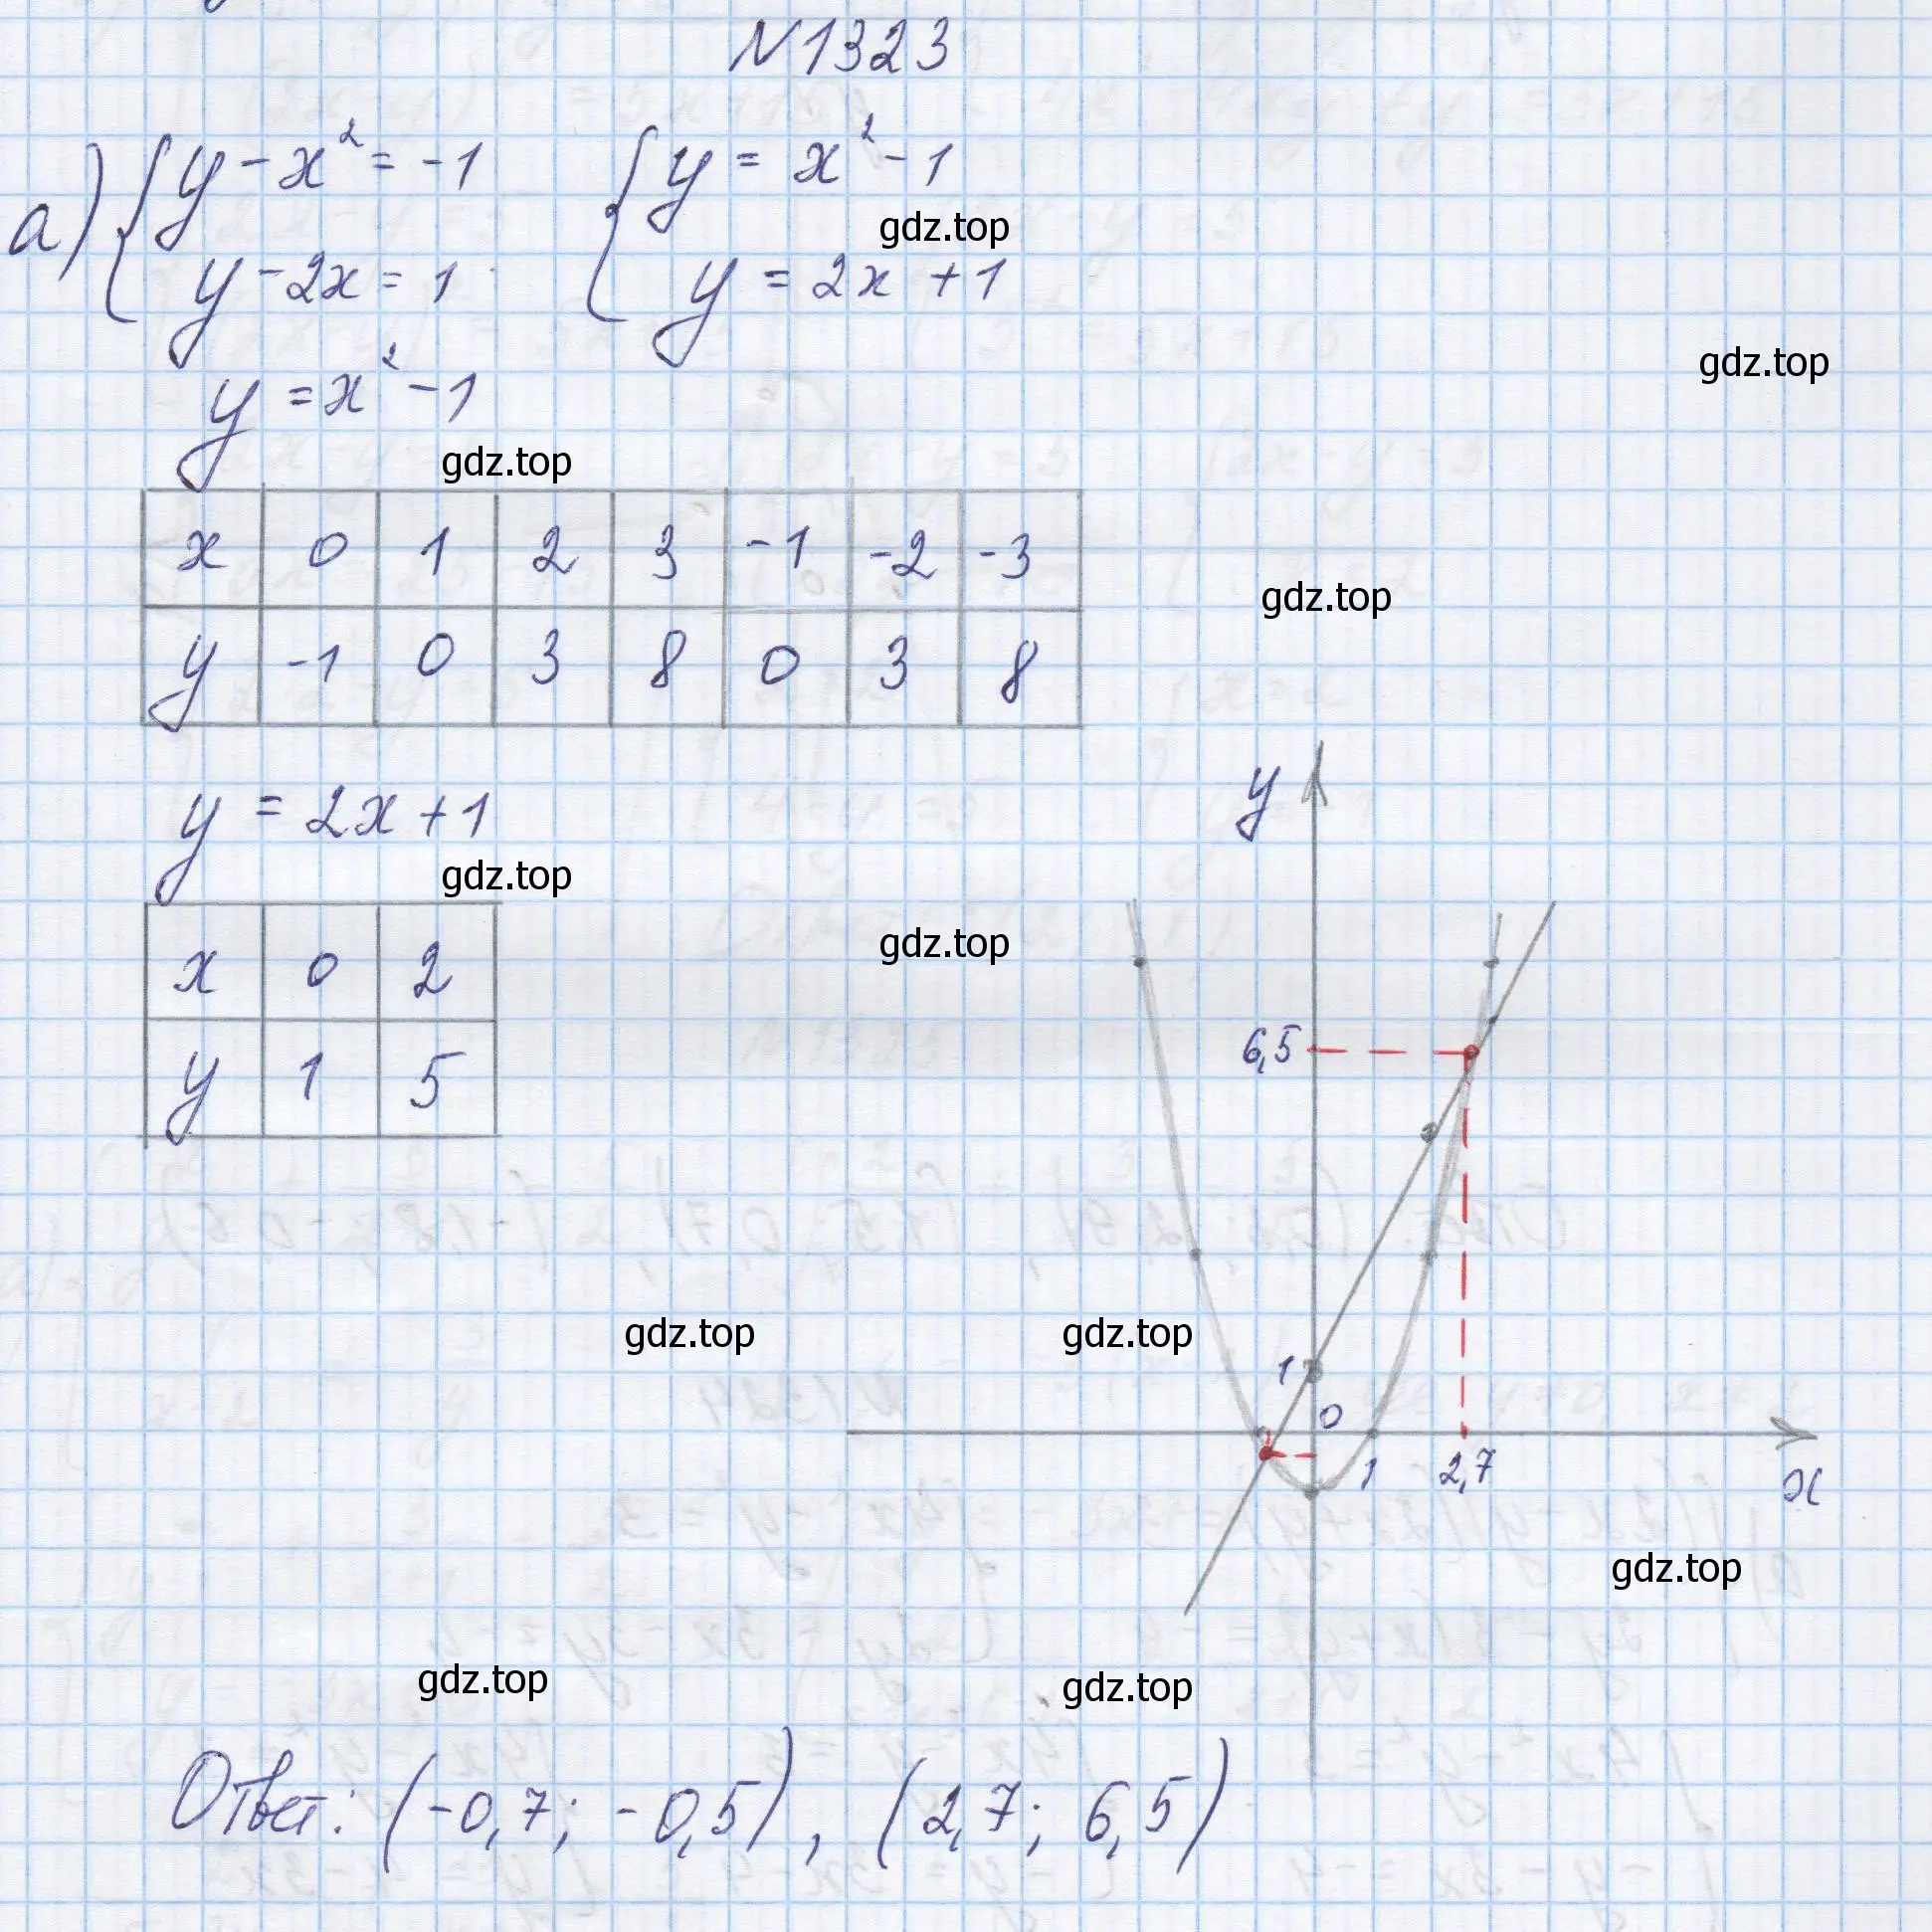 N1323
а) { y - x² = -1 { y = x² - 1
gdz.top
y - 2x = 1 y = 2x + 1
gdz.top
y = x² - 1
gdz.top
x 0 1 2 3 -1 -2 -3
gdz.top
y -1 0 3 8 0 3 8
y
y = 2x + 1
gdz.top
gdz.top
x 0 2
6,5
y 1 5
gdz.top gdz.top
1
0
1 2,7 x
gdz.top
gdz.top gdz.top
Ответ: (-0,7; -0,5), (2,7; 6,5)